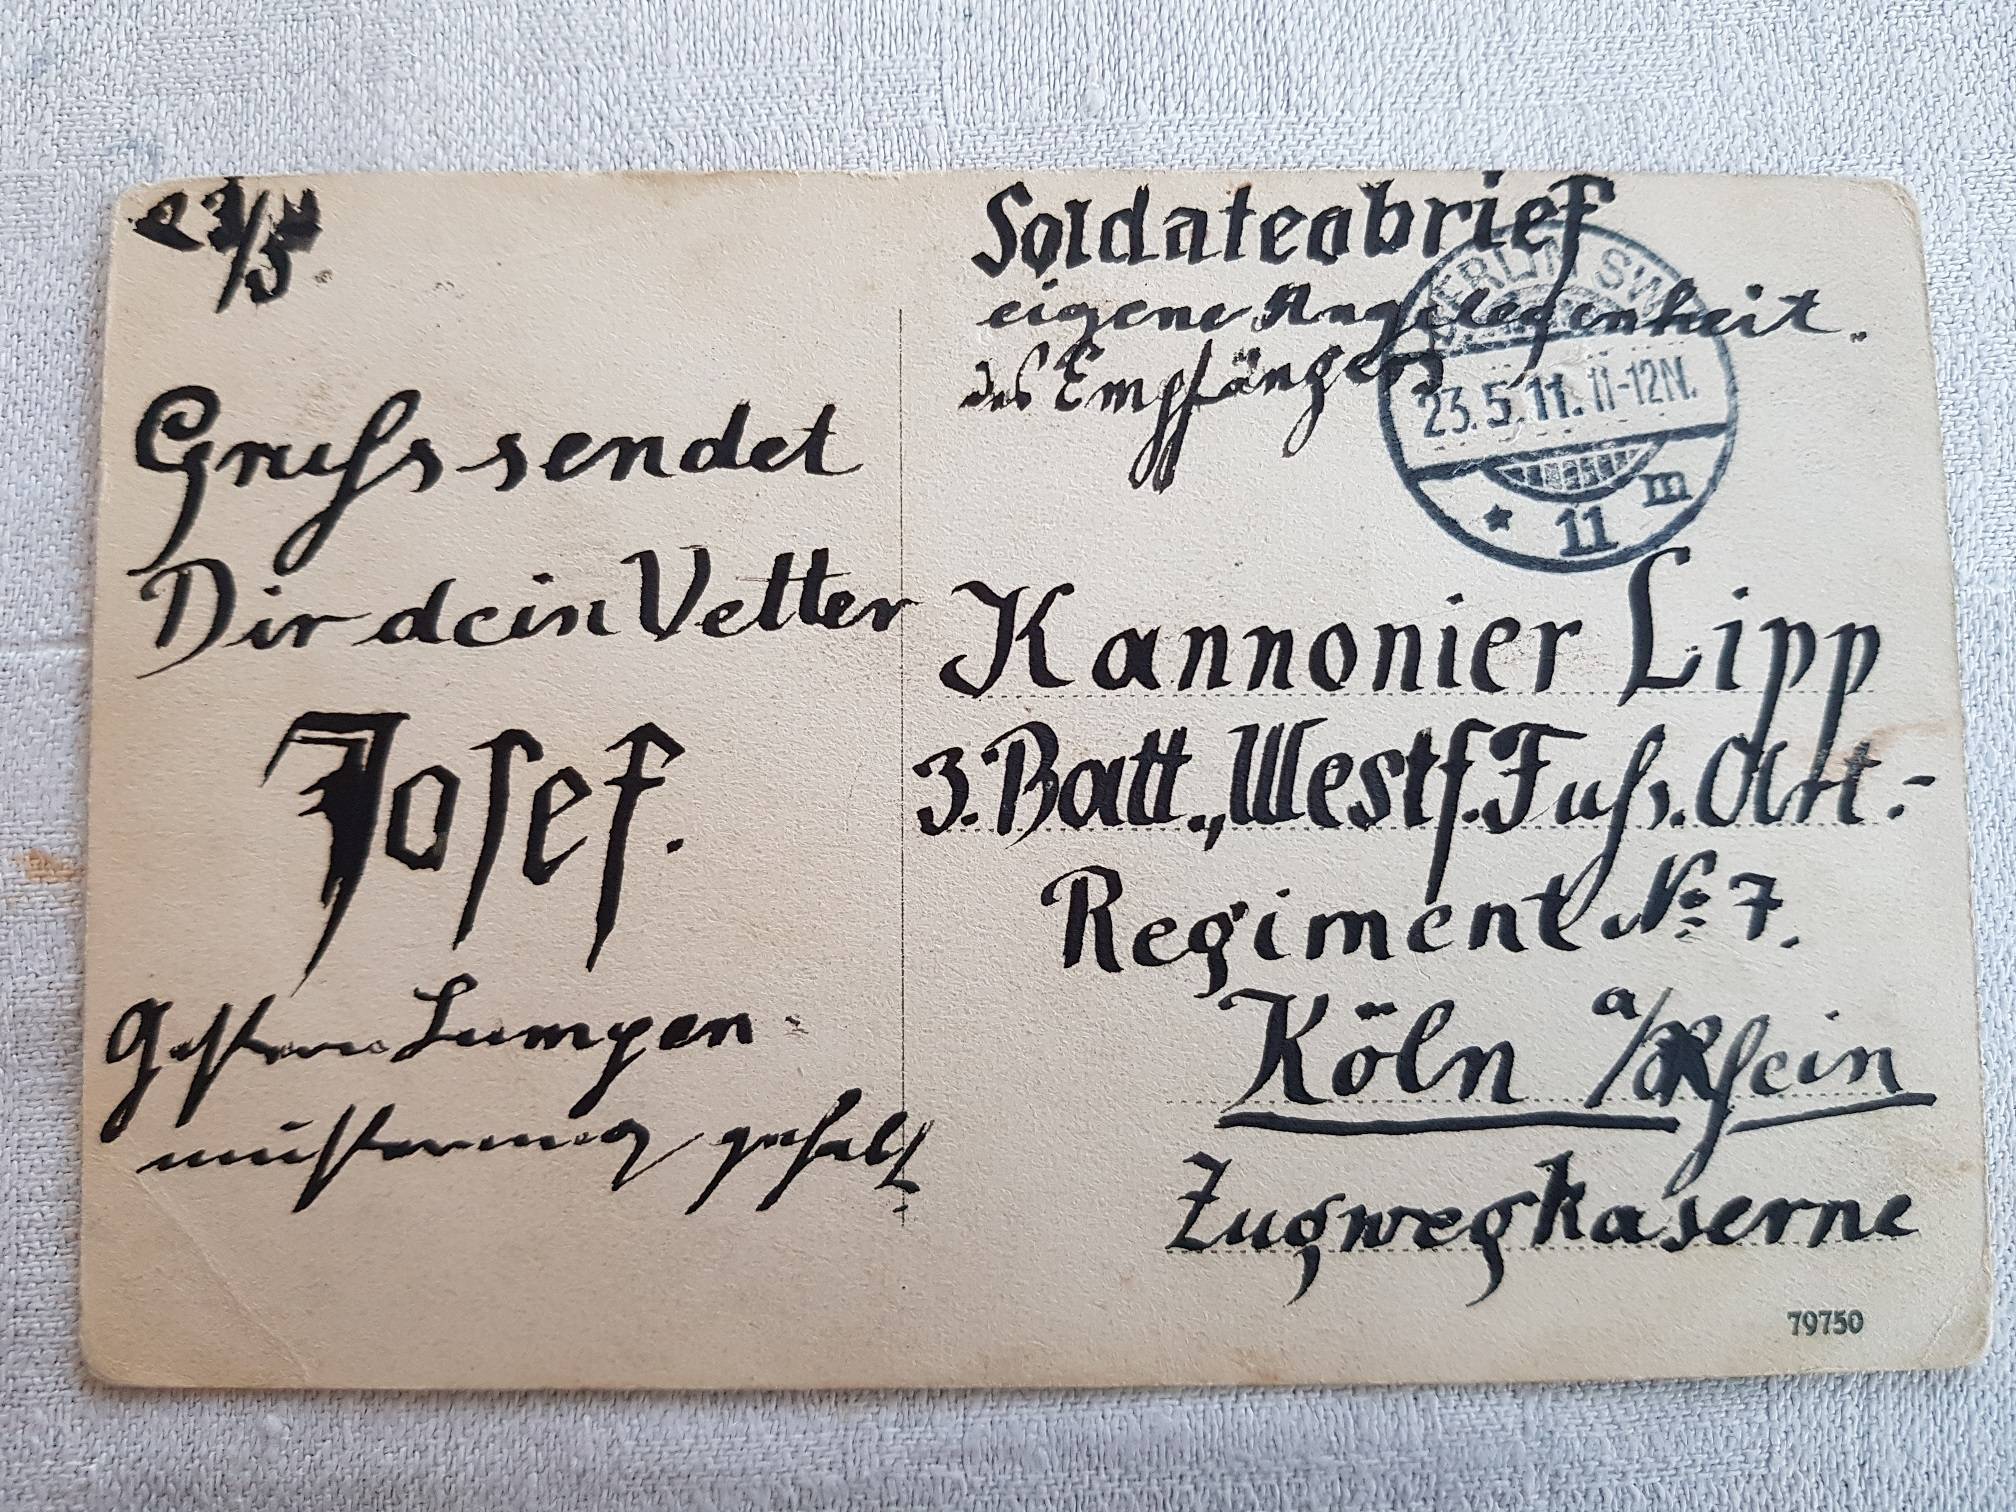 23/5 11
Gruß sendet
Dir dein Vetter
Josef.
Gestern Lumpen
musterung gehabt.
Soldatenbrief
eigene Angelegenheit.
des Empfängers
BERLIN SW
23.5.11. 11-12N.
* 11 m
Kannonier Lipp
3. Batt., Westf. Fuß. Art.-
Regiment No 7.
Köln a/Rhein
Zugwegkaserne
79750